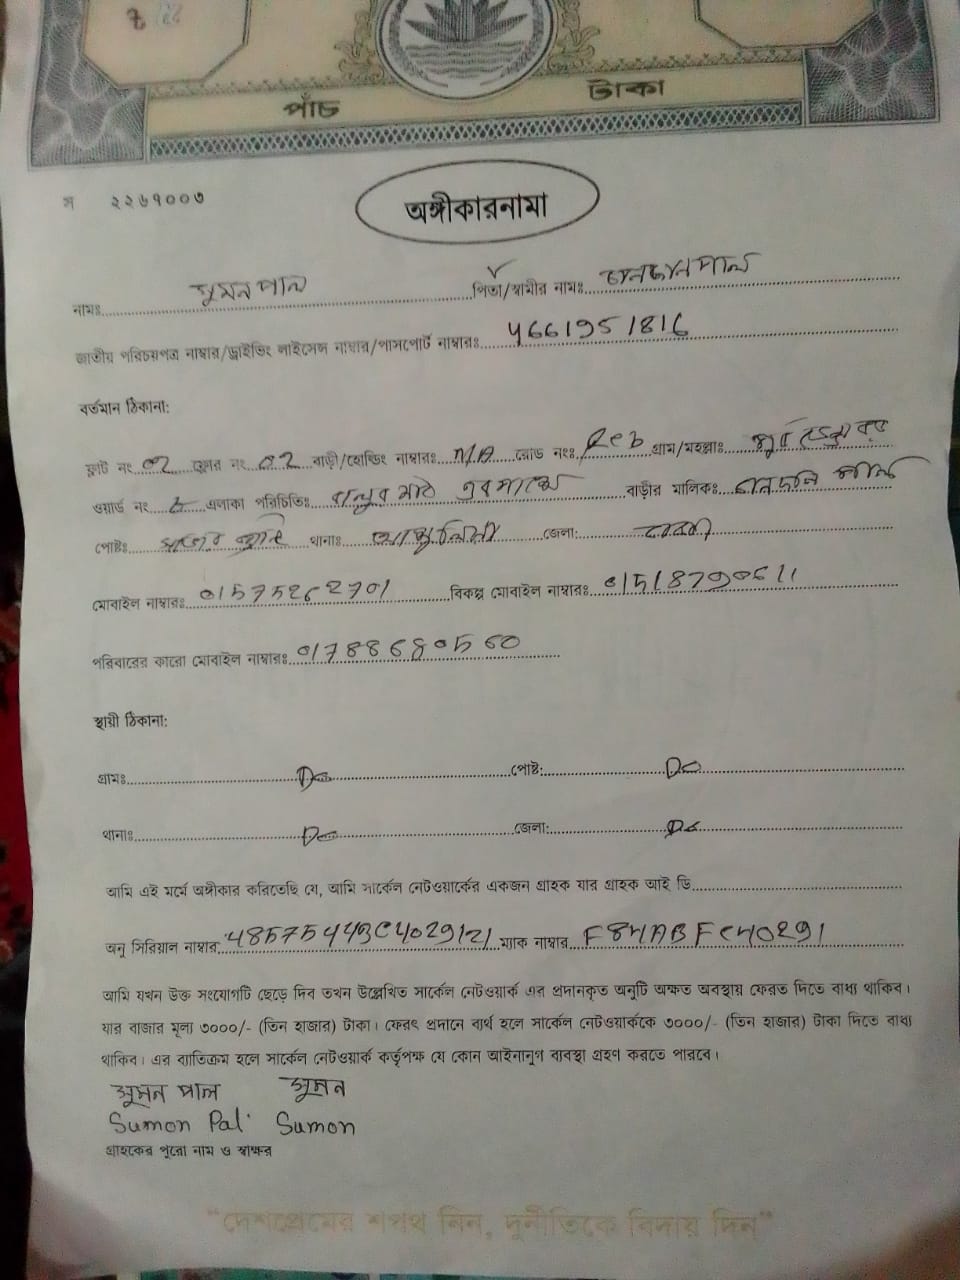 পাঁচ টাকা
অঙ্গীকারনামা
নামঃ সুমন পাল পিতা/স্বামীর নামঃ পাল
জাতীয় পরিচয়পত্র নাম্বার/ড্রাইভিং লাইসেন্স নাম্বার/পাসপোর্ট নাম্বারঃ 4661951816
বর্তমান ঠিকানা:
ফ্লাট নং 02 ফ্লোর নং 02 বাড়ী/হোল্ডিং নাম্বারঃ N/A রোড নংঃ গ্রাম/মহল্লাঃ
ওয়ার্ড নং এলাকা পরিচিতিঃ মাঠ বাড়ীর মালিকঃ পাল
পোষ্টঃ থানাঃ আশুলিয়া জেলা: ঢাকা
মোবাইল নাম্বারঃ বিকল্প মোবাইল নাম্বারঃ
পরিবারের কারো মোবাইল নাম্বারঃ 01788680560
স্থায়ী ঠিকানা:
গ্রামঃ Do পোষ্ট: Do
থানাঃ Do জেলা: Do
আমি এই মর্মে অঙ্গীকার করিতেছি যে, আমি সার্কেল নেটওয়ার্কের একজন গ্রাহক যার গ্রাহক আই ডি
অনু সিরিয়াল নাম্বার ম্যাক নাম্বার
আমি যখন উক্ত সংযোগটি ছেড়ে দিব তখন উল্লেখিত সার্কেল নেটওয়ার্ক এর প্রদানকৃত অনুটি অক্ষত অবস্থায় ফেরত দিতে বাধ্য থাকিব।
যার বাজার মূল্য ৩০০০/- (তিন হাজার) টাকা। ফেরৎ প্রদানে ব্যর্থ হলে সার্কেল নেটওয়ার্ককে ৩০০০/- (তিন হাজার) টাকা দিতে বাধ্য
থাকিব। এর ব্যতিক্রম হলে সার্কেল নেটওয়ার্ক কর্তৃপক্ষ যে কোন আইনানুগ ব্যবস্থা গ্রহণ করতে পারবে।
সুমন পাল সুমন
Sumon Pal Sumon
গ্রাহকের পুরো নাম ও স্বাক্ষর
"দেশপ্রেমের শপথ নিন, দুর্নীতিকে বিদায় দিন"